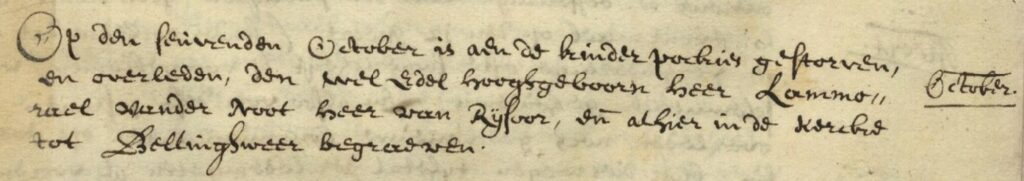 Op den seuvenden October is aen de kinder pockies gestorven,
en overleden, den wel Edel hooghgeboorn heer Lammo„
rael vander Noot heer van Rijsoor, en̄ alhier in de Kercke
tot Bellinghweer begraeven.
October.